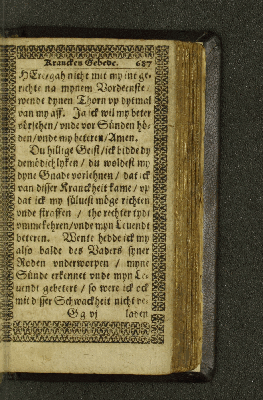 Krancken Gebede. 687
HErr gah nicht mit my int ge-
richte na mynem Vordenste/
wende dynen Thorn vp dytmal
van my aff. Ja ick wil my beter
vörsehen/ vnde vor Sünden hö-
den/ vnde my beteren/ Amen.
Du hillige Geist/ ick bidde dy
demödichlyken/ du woldest my
dyne Gnade vorlehnen/ dat ick
van disser Kranckheit kame/ vp
dat ick my sülvest möge richten
vnde straffen/ tho rechter tydt
vmmekehren/ vnde myn Leuendt
beteren. Wente hedde ick my
also balde des Vaders syner
Roden vnderworpen/ myne
Sünde erkennet vnde myn Le-
uendt gebetert/ so were ick ock
mit disser Schwackheit nicht be-
Gg vj laden